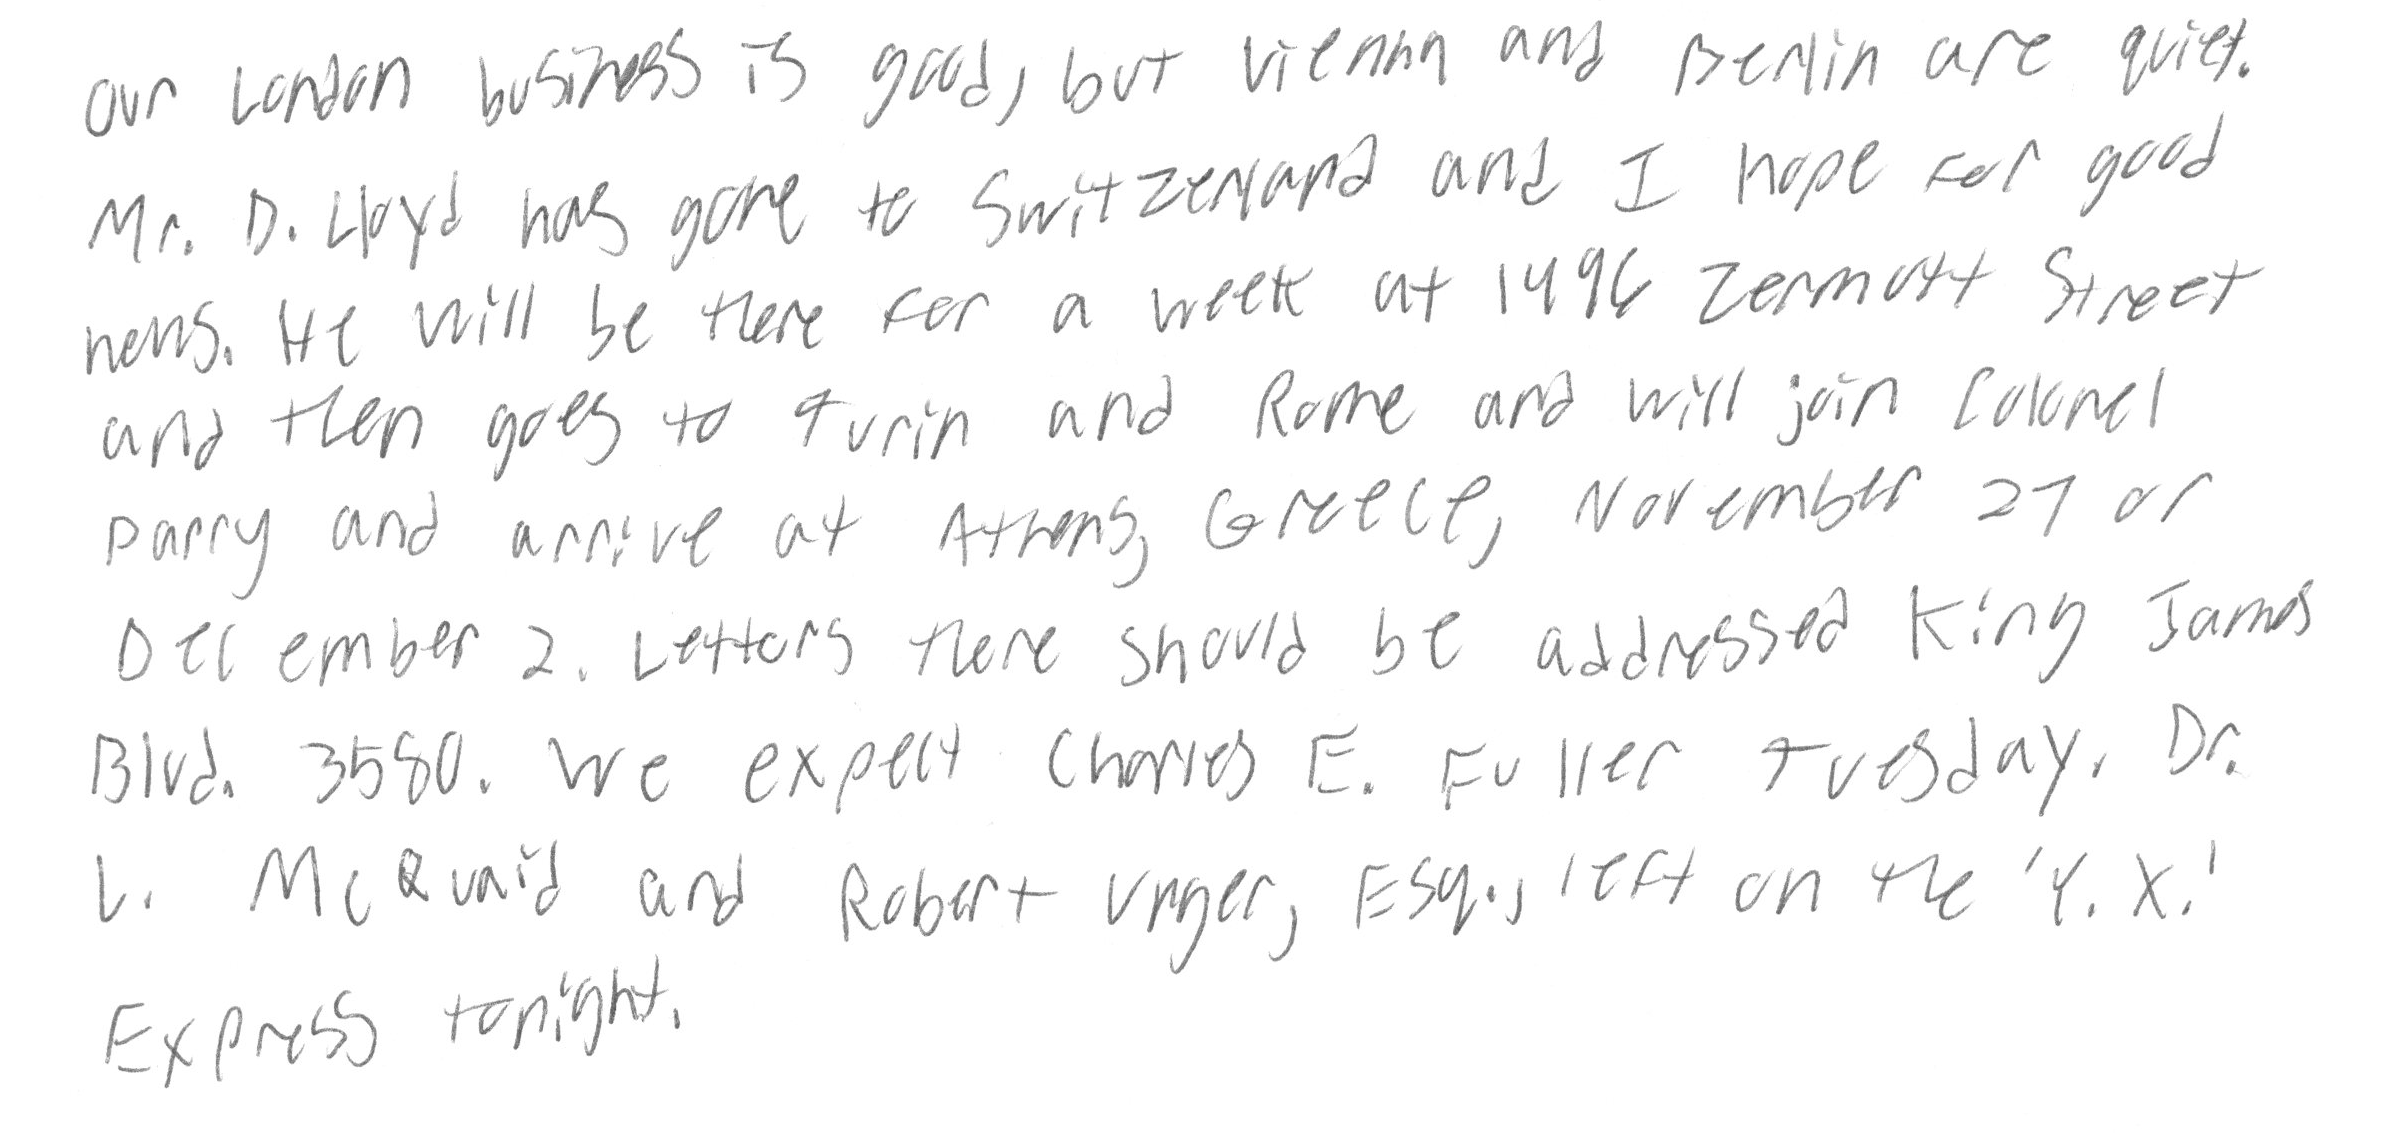 Our London business is good, but Vienna and Berlin are quiet.
Mr. D. Lloyd has gone to Switzerland and I hope for good
news. He will be there for a week at 1496 Zermott Street
and then goes to Turin and Rome and will join Colonel
Parry and arrive at Athens, Greece, November 27 or
December 2. Letters there should be addressed King James
Blvd. 3580. We expect Charles E. Fuller Tuesday. Dr.
L. McQuaid and Robert Unger, Esq., left on the 'Y. X.'
Express tonight.